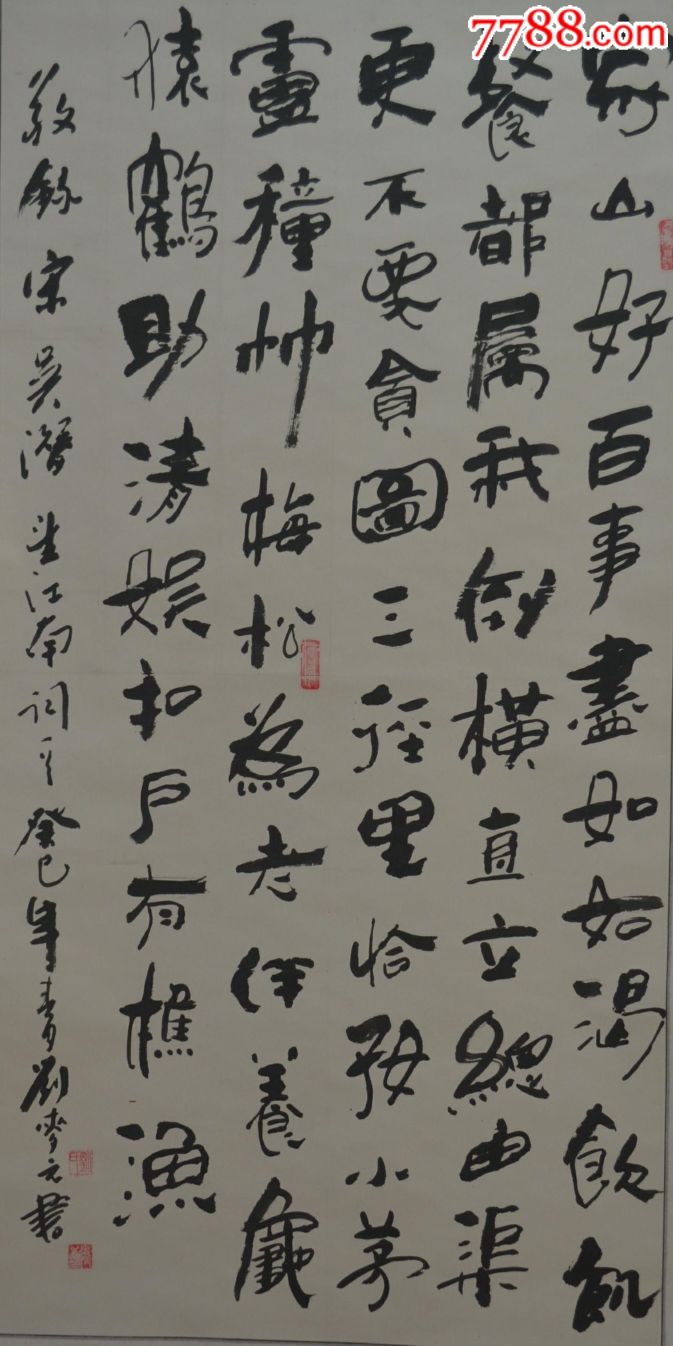 7788.com
家山好百事盡如如渴飲飢
餐都屬我倒橫直立總由渠
更不要貪圖三徑里恰好小茅
廬種竹梅松為老伴養龜
猿鶴助清娛扣戶有樵漁
敬錄宋吳潛望江南詞 癸巳年 劉 元書